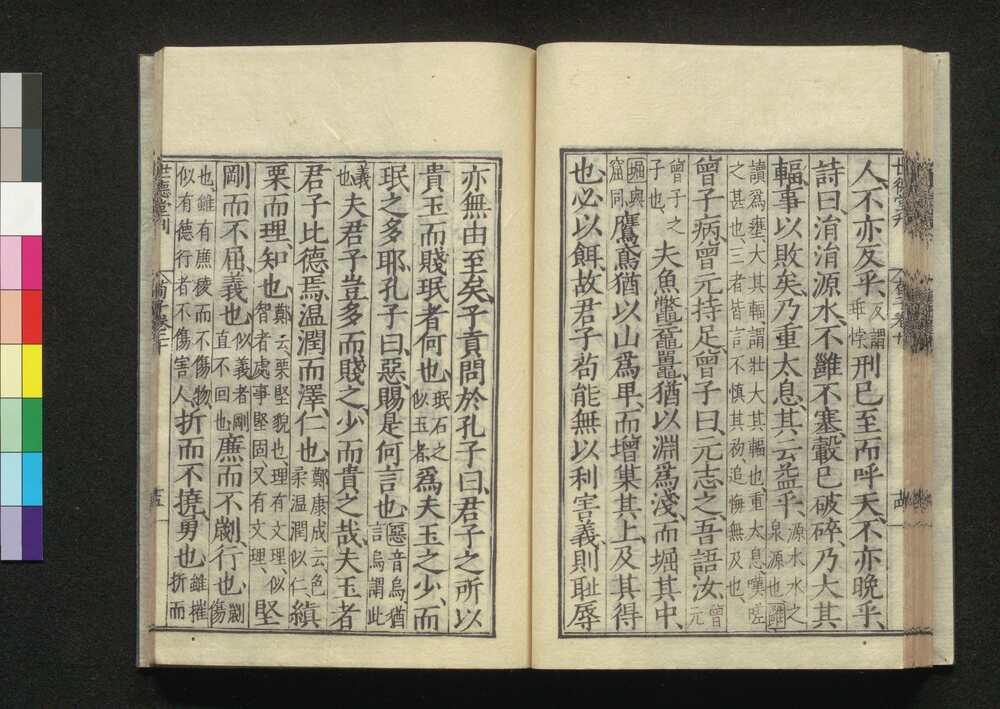 世德堂刊
荀子卷二十
人、不亦反乎、反謂乖悖刑已至而呼天、不亦晚乎、
詩曰、涓涓源水不雝不塞、轂已破碎、乃大其
輻、事以敗矣、乃重太息、其云益乎、源水水之泉源也雝
讀爲壅大其輻謂壯大其輻也重太息嘆嗟之甚也三者皆言不慎其初追悔無及也
曾子病、曾元持足、曾子曰、元志之、吾語汝、曾元
曾子之子也、夫魚鼈黿鼉猶以淵爲淺、而堀其中、
堀與窟同鷹鳶猶以山爲卑、而增巢其上、及其得
也必以餌、故君子苟能無以利害義、則恥辱
亦無由至矣、子貢問於孔子曰、君子之所以
貴玉而賤珉者何也、珉石之似玉者爲夫玉之少、而
珉之多耶、孔子曰、惡、賜是何言也、惡音烏猶言烏謂此
義也夫君子豈多而賤之、少而貴之哉、夫玉者
君子比德焉、温潤而澤、仁也、鄭康成云色柔温潤似仁縝
栗而理、知也、鄭云栗堅貌也理有文理似智者處事堅固又有文理、堅
剛而不屈、義也、似義者剛直不回也廉而不劌、行也、劌傷
也、雖有廉稜而不傷物似有德行者不傷害人、折而不撓、勇也、雖摧折而
世德堂刊
荀子卷二十
十五